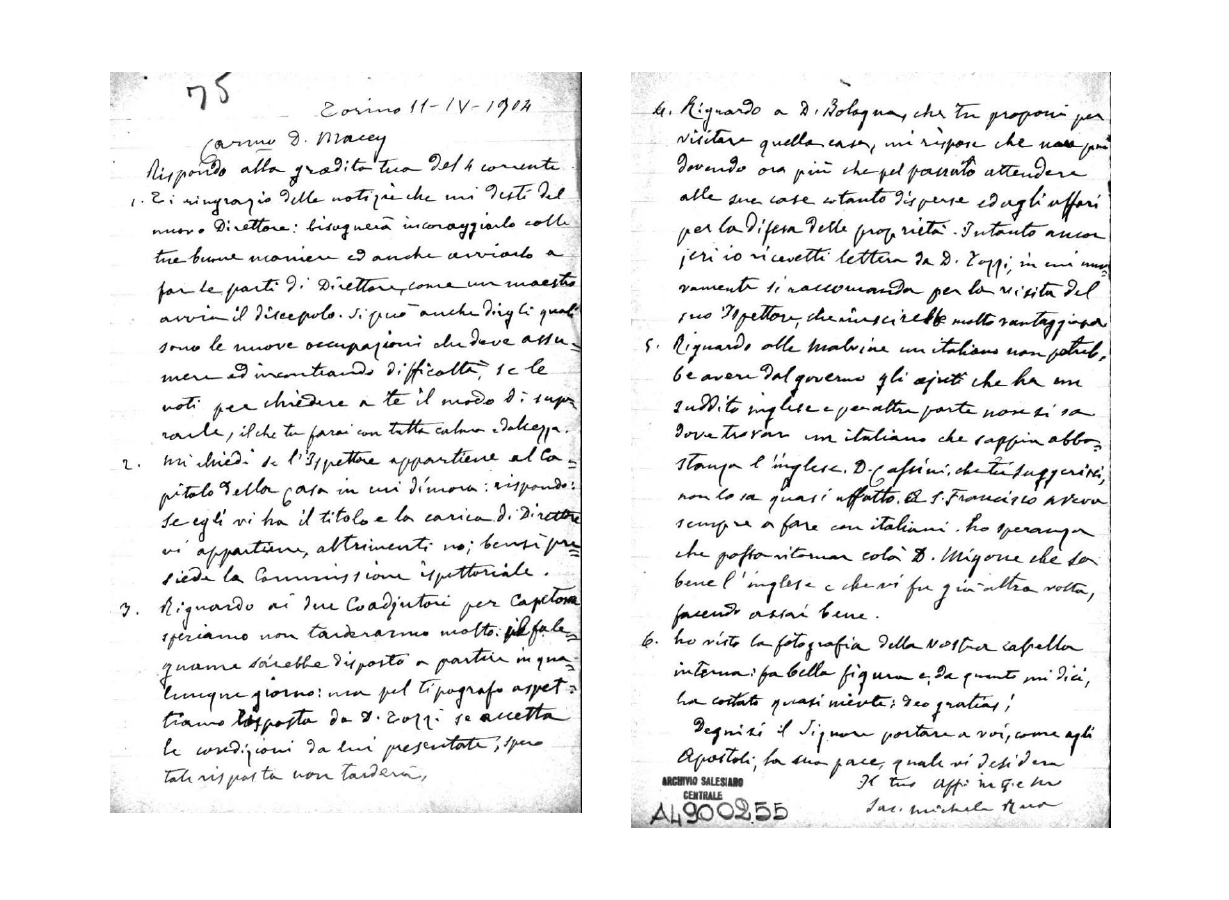 75
Torino 11-IV-1904
Carmo D. Macey
Rispondo alla gradita tua del 4 corrente.
1. Ti ringrazio delle notizie che mi desti del
nuovo Direttore: bisognerà incoraggiarlo colle
tue buone maniere ed anche avviarlo a
far le parti di Direttore, come un maestro
avvia il discepolo. Si può anche dirgli quali
sono le nuove occupazioni che deve assu=
mere ed incontrando difficoltà, se le
noti per chiedere a te il modo di supe=
rarle, il che tu farai con tutta calma e dolcezza.
2. Mi chiedi se l'Ispettore appartiene al Ca=
pitolo della Casa in cui dimora: rispondo:
Se egli vi ha il titolo e la carica di Direttore
vi appartiene, altrimenti no; bensì pre=
siede la Commissione ispettoriale.
3. Riguardo ai due Coadjutori per Capetown
speriamo non tarderanno molto: il fale=
gname sarebbe disposto a partire in qua=
lunque giorno: ma pel tipografo aspet=
tiamo risposta da D. Tozzi se accetta
le condizioni da lui presentate; spero
tale risposta non tarderà,
4. Riguardo a D. Bologna, che tu proponi per
visitare quella casa, mi rispose che non può
dovendo ora più che pel passato attendere
alle sue case cotanto disperse ed agli affari
per la difesa delle proprietà. Intanto ancor
jeri io ricevetti lettera da D. Tozzi, in cui nuo=
vamente si raccomanda per la visita del
suo Ispettore, che riuscirebbe molto vantaggiosa
5. Riguardo alle Malvine un italiano non potreb=
be avere dal governo gli ajuti che ha un
suddito inglese e per altra parte non si sa
dove trovar un italiano che sappia abba=
stanza l'inglese. D. Cassini, che tu suggerissi,
non lo sa quasi affatto. A S. Francisco aveva
sempre a fare con italiani. ho speranza
che possa ritornar colà D. Migone che sa
bene l'inglese e che vi fu già altra volta,
facendo assai bene.
6. ho visto la fotografia della Vostra cappella
interna: fa bella figura e, da quanto mi dici,
ha costato quasi niente: deo gratias!
Degnisi il Signore portare a voi, come agli
Apostoli, la sua pace, quale vi desidera
Il tuo Aff in G e M
Sac. Michele Rua
ARCHIVIO SALESIANO
CENTRALE
A4900255